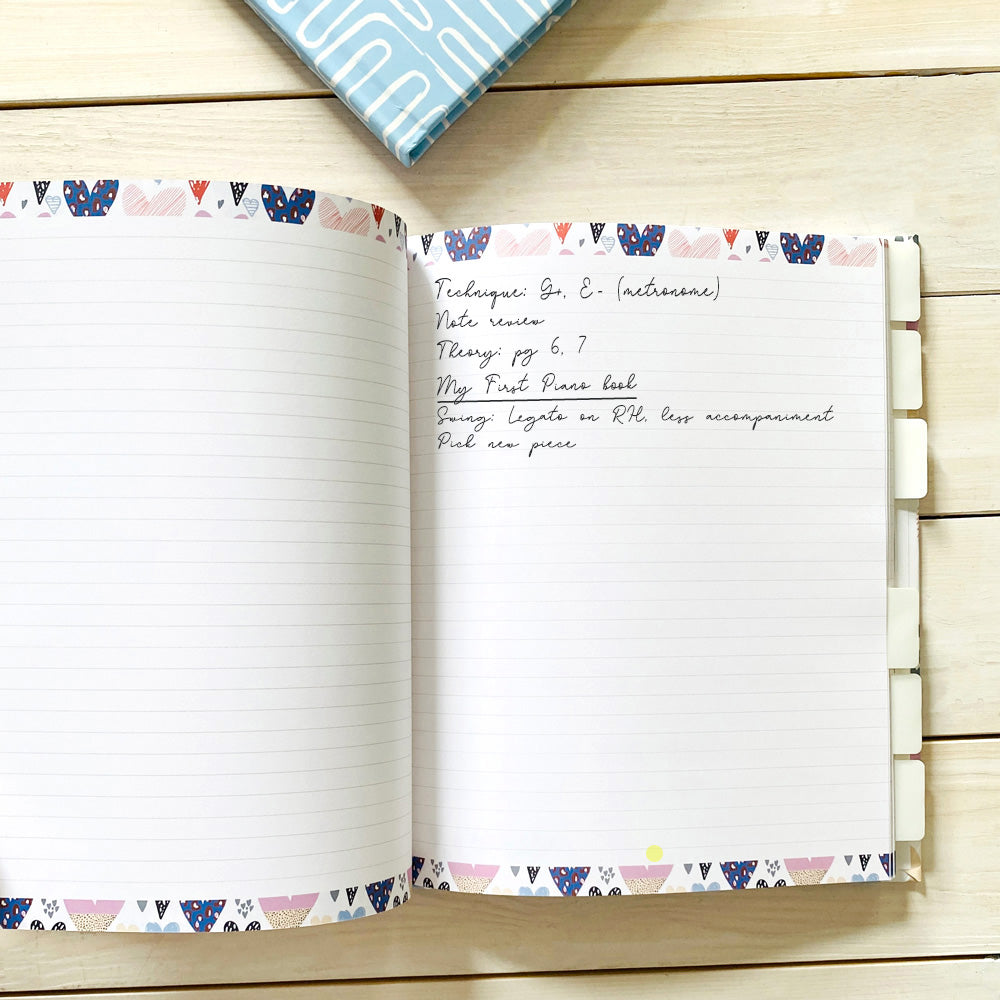 Technique: G+, E- (metronome)
Note review
Theory: pg 6, 7
My First Piano book
Swing: Legato on RH, less accompaniment
Pick new piece